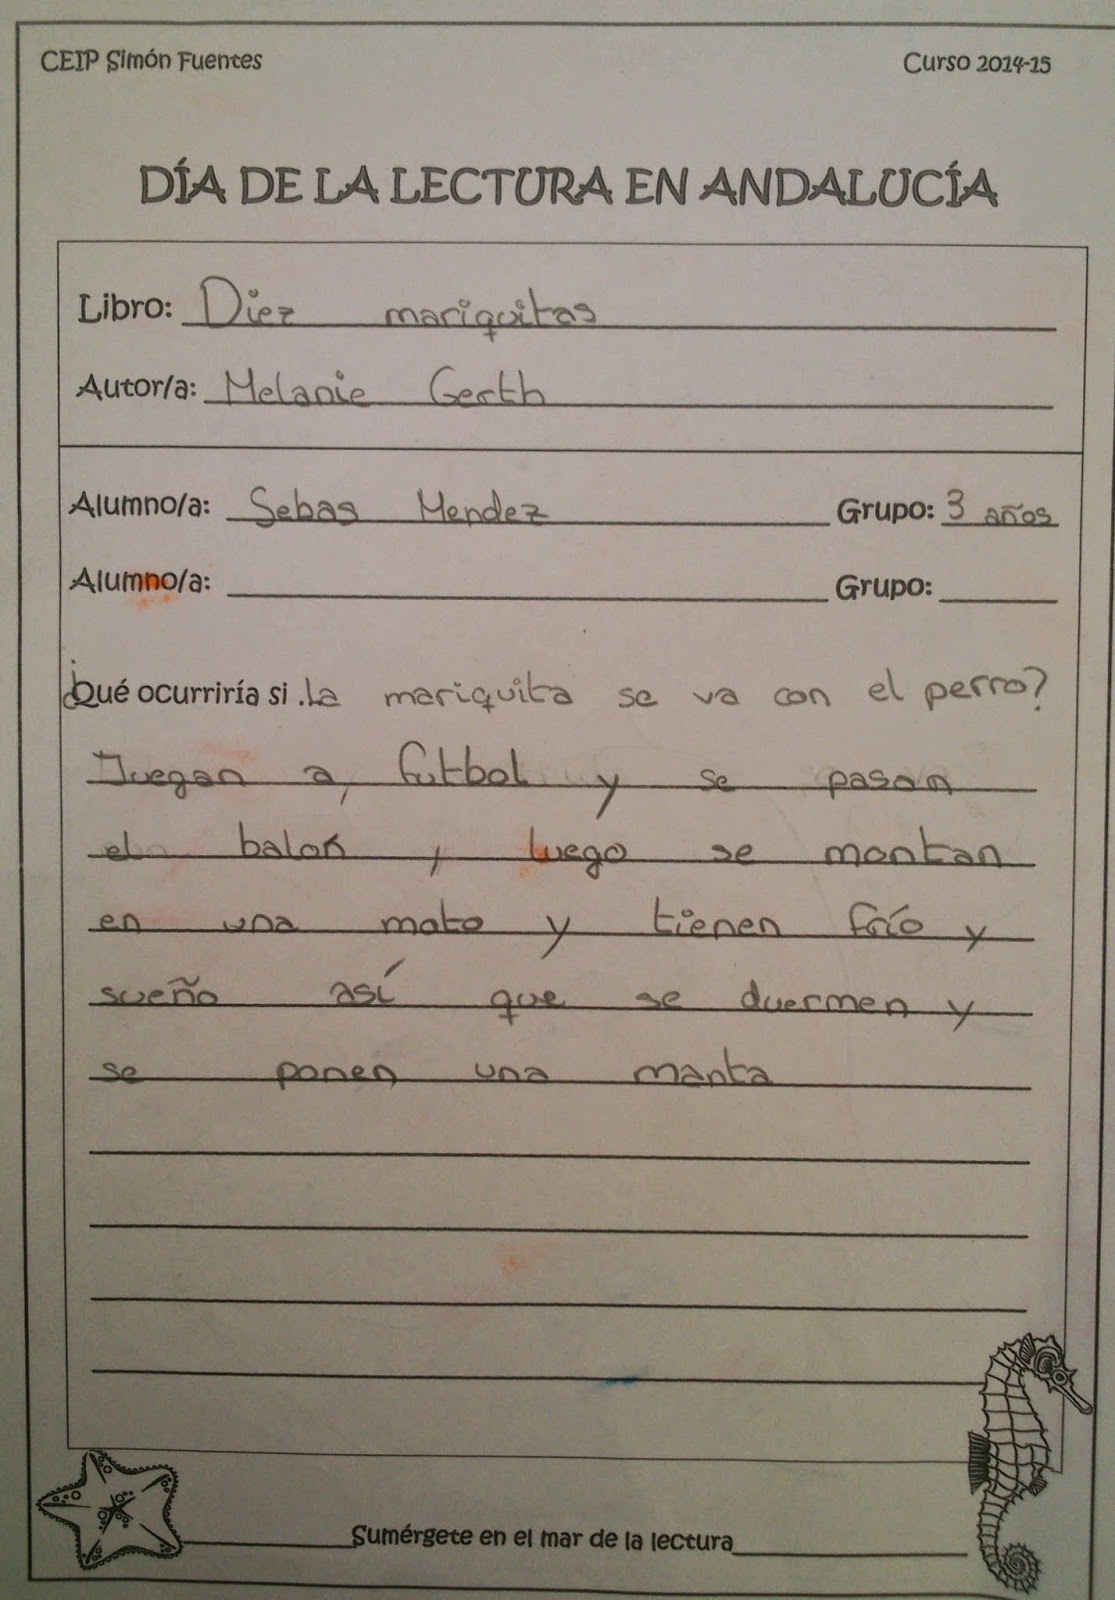 CEIP Simón Fuentes Curso 2014-15
DÍA DE LA LECTURA EN ANDALUCÍA
Libro: Diez mariquitas
Autor/a: Melanie Gerth
Alumno/a: Sebas Mendez Grupo: 3 años
Alumno/a: Grupo:
¿Qué ocurriría si .La mariquita se va con el perro?
Juegan a, fútbol y se pasan
el balón , luego se montan
en una moto y tienen frío y
sueño así que se duermen y
se ponen una manta
Sumérgete en el mar de la lectura